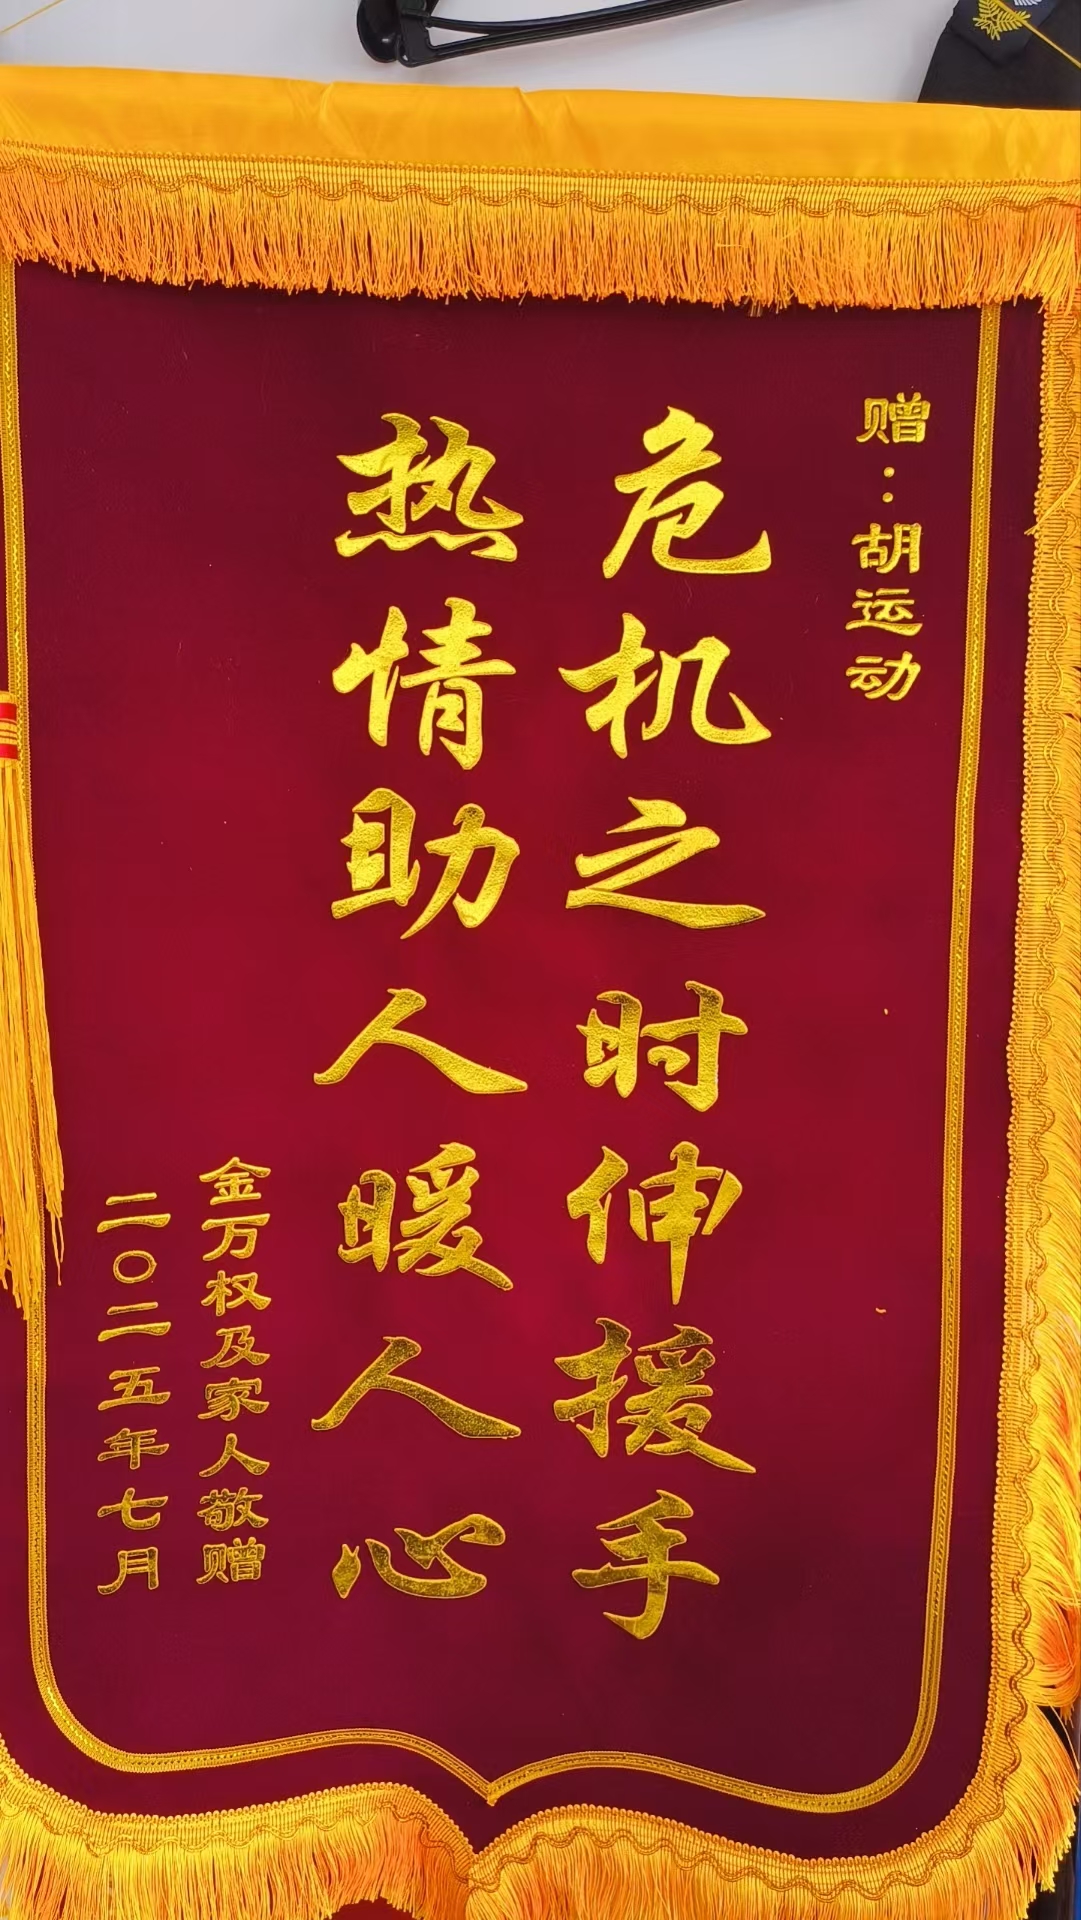 赠：胡运动
危机之时伸援手
热情助人暖人心
金万权及家人敬赠
二〇二五年七月